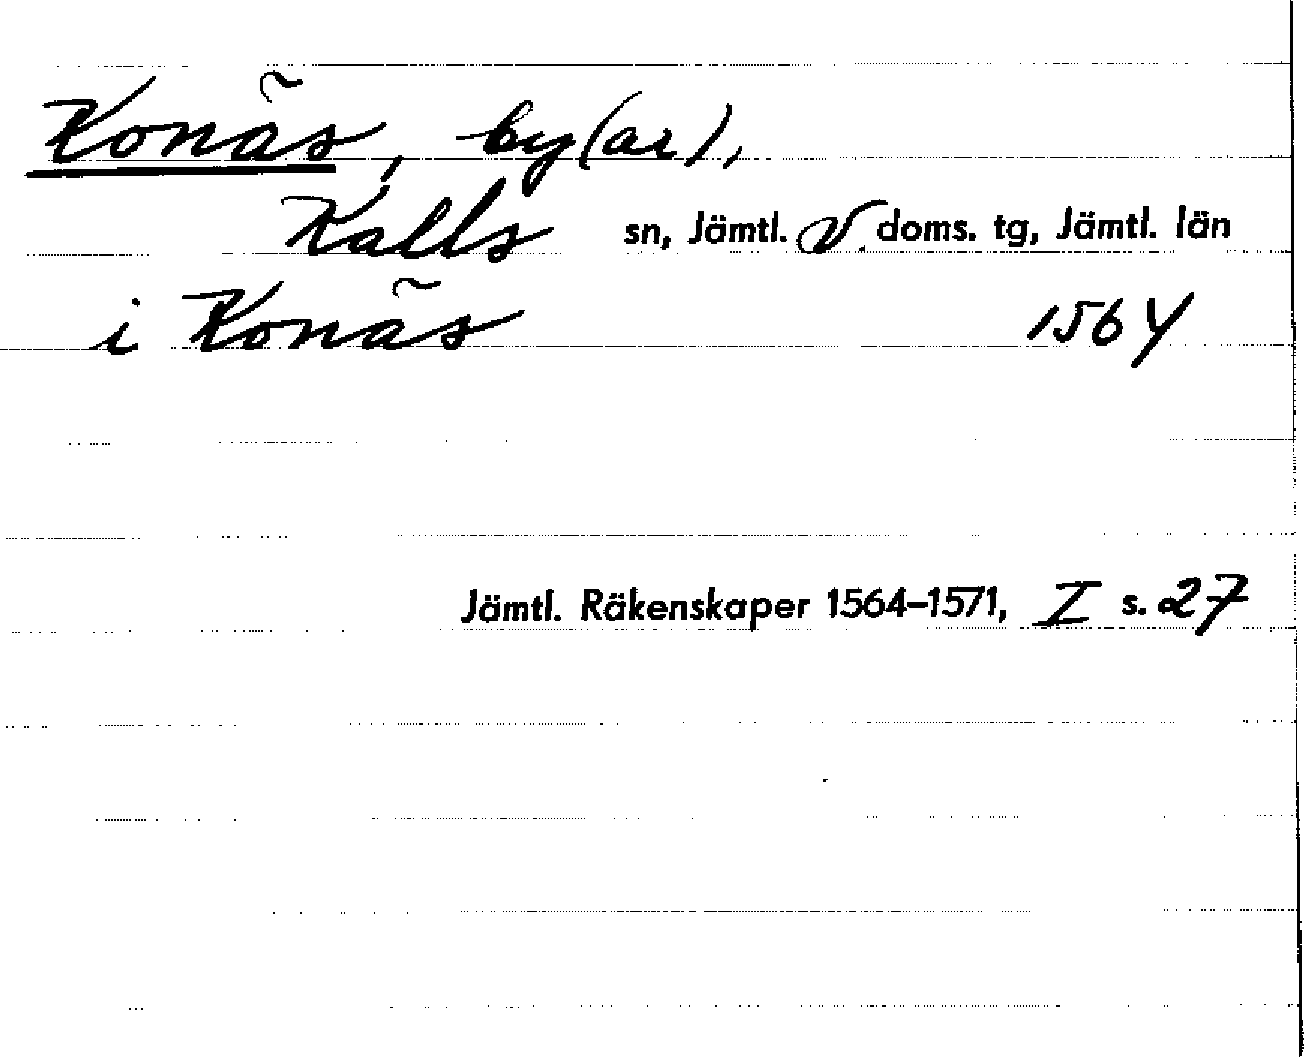 Konäs, by(ar),
Kalls sn, Jämtl. V. doms. tg, Jämtl. län
i Konäs 1564
Jämtl. Räkenskaper 1564–1571, I s. 27